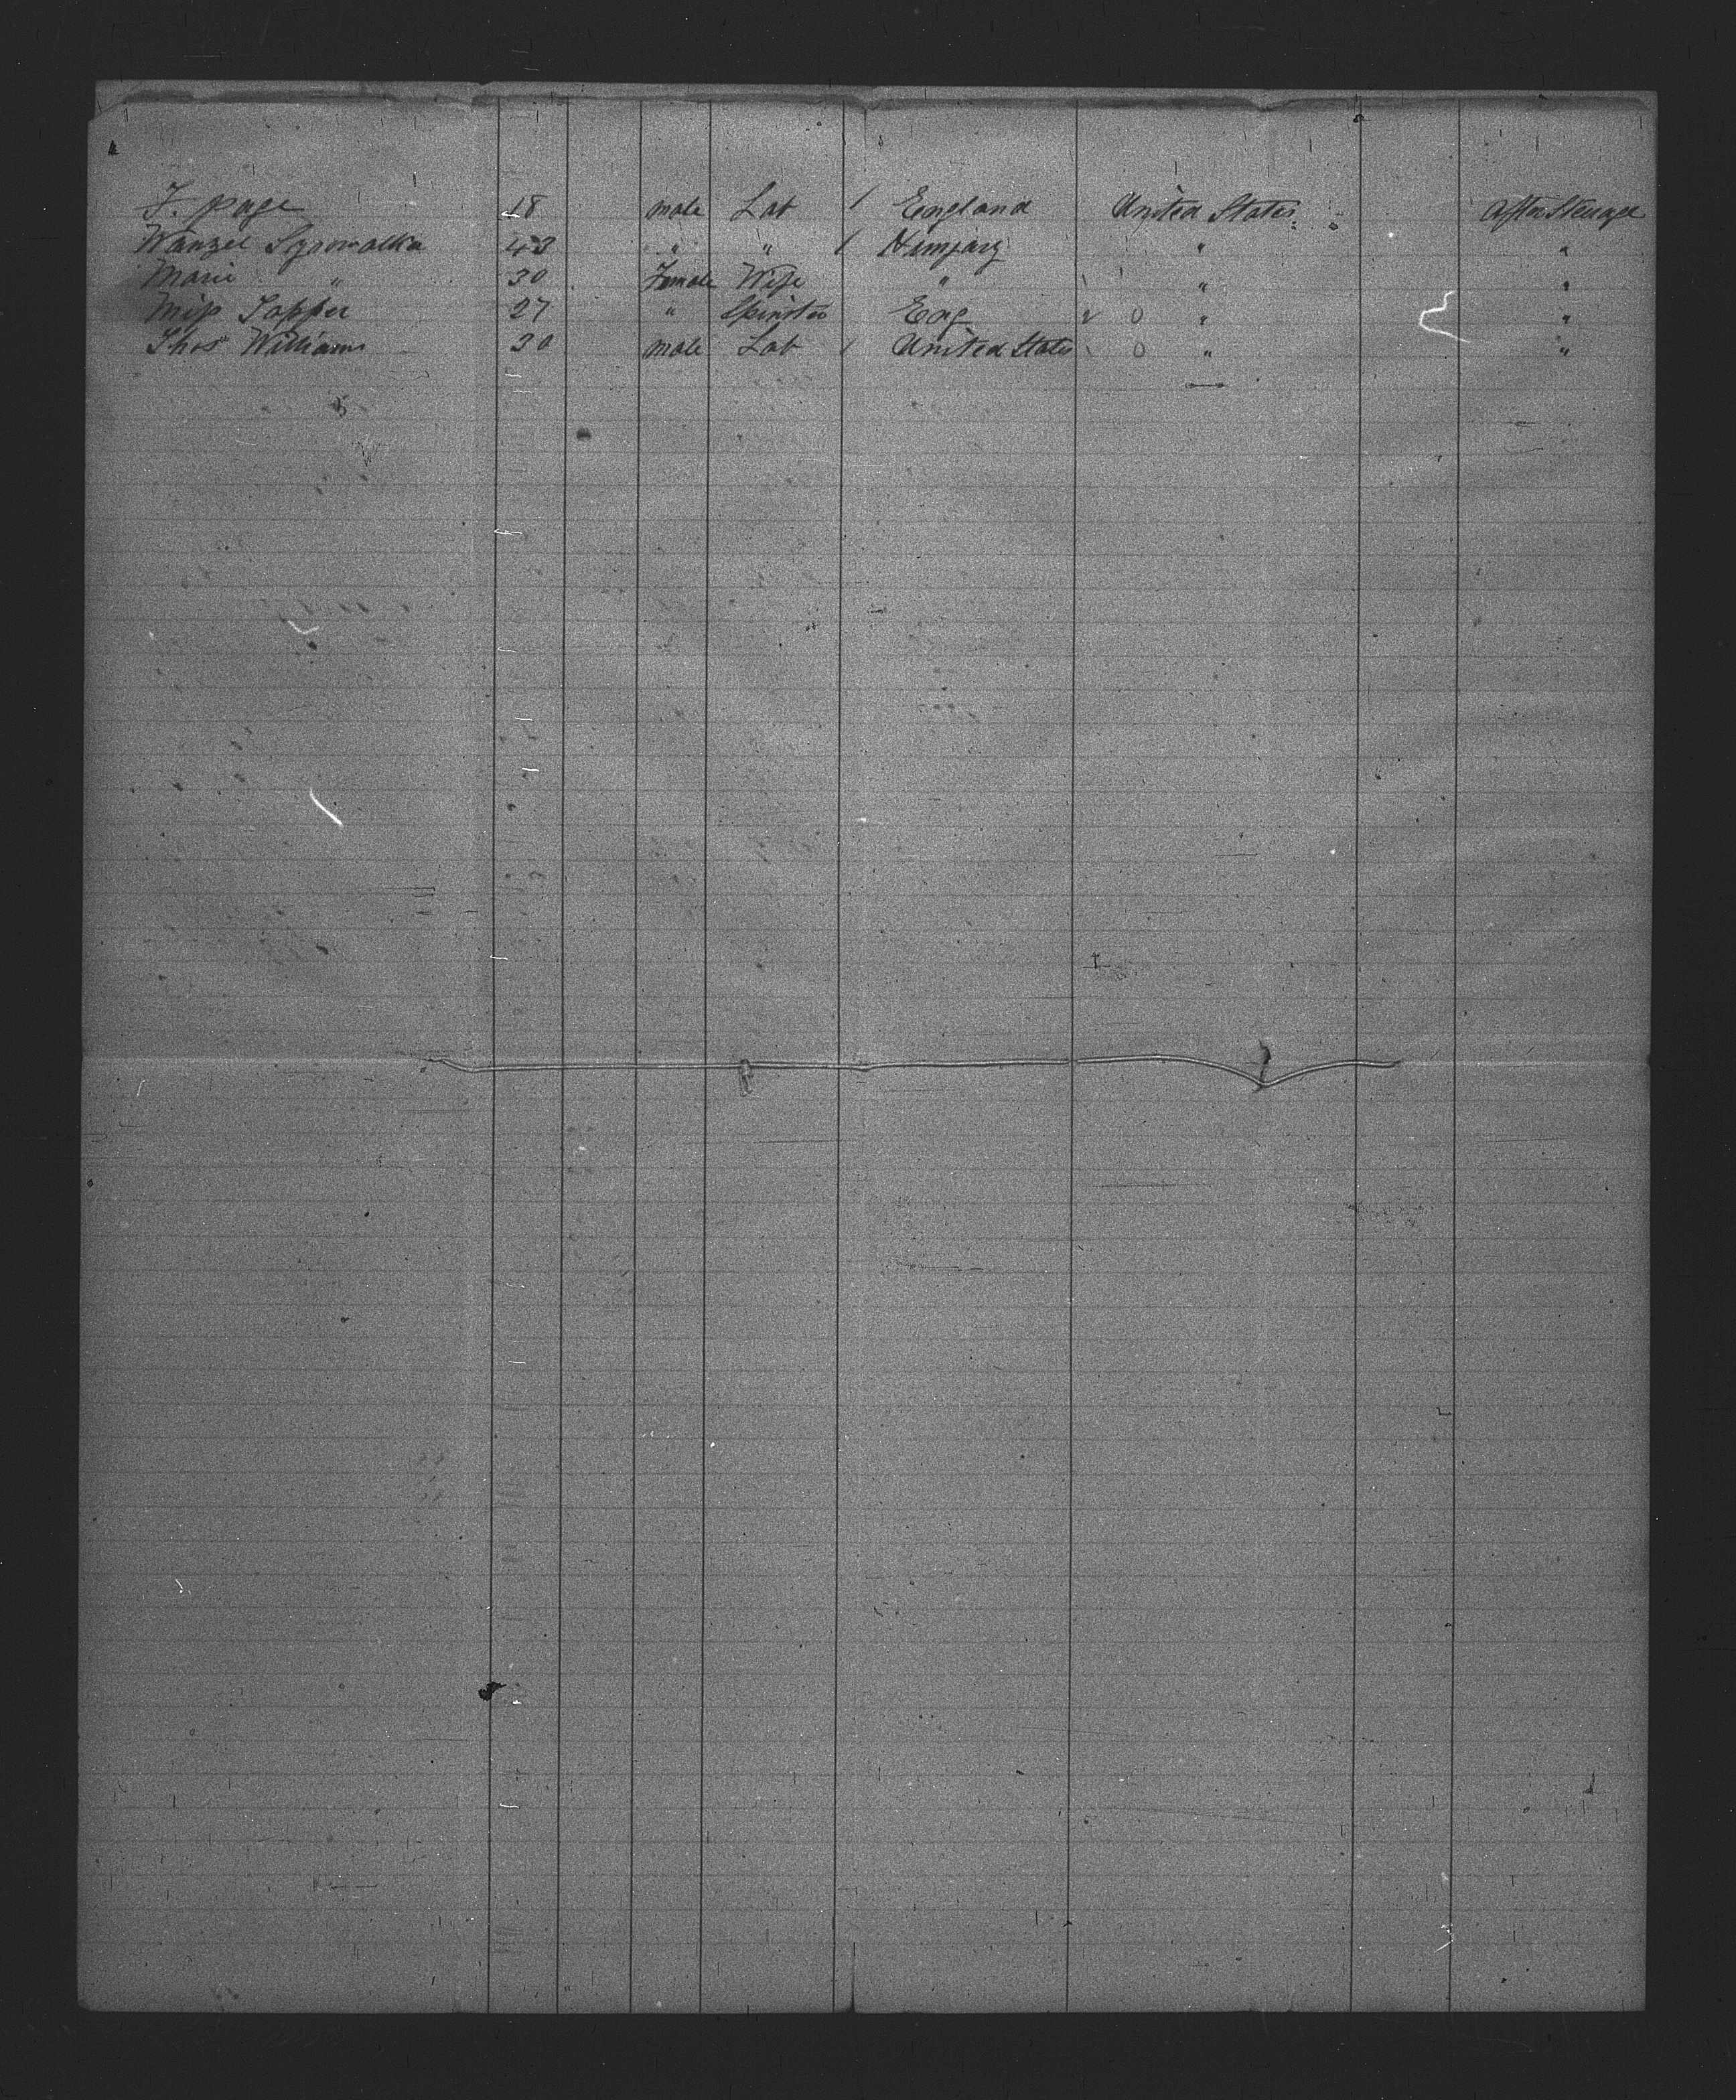 J. Page 18 male Lab / England United States After Steerage
Wanzel Syrowatka 43 " " / Hungary " "
Marie " 30 Female Wife " " "
Miss Sapper 27 " Spinster Eng 0 " "
Thos Williams 30 male Lab / United States 0 " "
5